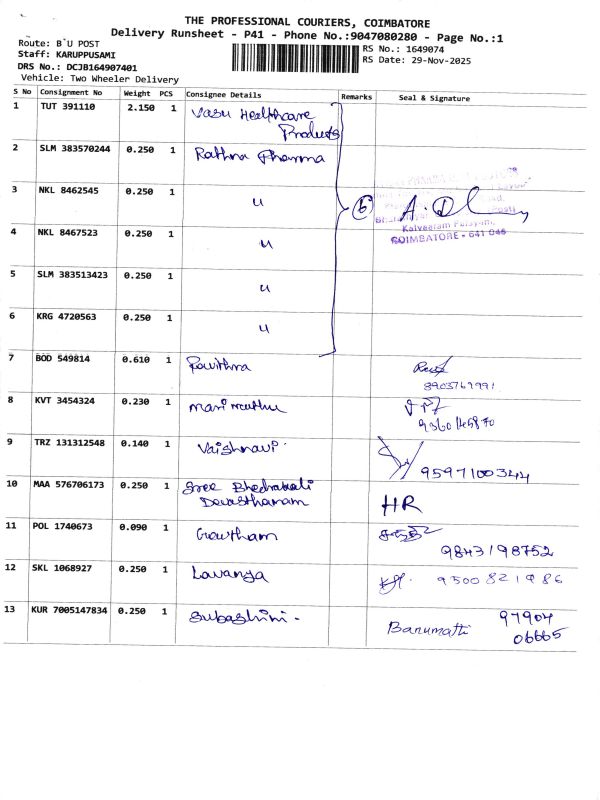 THE PROFESSIONAL COURIERS, COIMBATORE
Delivery Runsheet - P41 - Phone No.:9047080280 - Page No.:1
Route: B`U POST
Staff: KARUPPUSAMI
DRS No.: DCJB164907401
Vehicle: Two Wheeler Delivery
RS No.: 1649074
RS Date: 29-Nov-2025
S No Consignment No Weight PCS Consignee Details Remarks Seal & Signature
1 TUT 391110 2.150 1 Vasu Healthcare
Products
2 SLM 383570244 0.250 1 Rathna Pharma
3 NKL 8462545 0.250 1 u
6 A.D
4 NKL 8467523 0.250 1 u
Kalveeram Palayam
COIMBATORE - 641 046
5 SLM 383513423 0.250 1 u
6 KRG 4720563 0.250 1 u
7 BOD 549814 0.610 1 Pavithra
8903761991
8 KVT 3454324 0.230 1 Marimuthu
9360145870
9 TRZ 131312548 0.140 1 Vaishnavi
9597100344
10 MAA 576706173 0.250 1 Sree Bhedrakali
Devasthanam HR
11 POL 1740673 0.090 1 Gowtham
9843198752
12 SKL 1068927 0.250 1 Lavanya 9500821986
13 KUR 7005147834 0.250 1 Subashini - 97904
Banumathi 06665